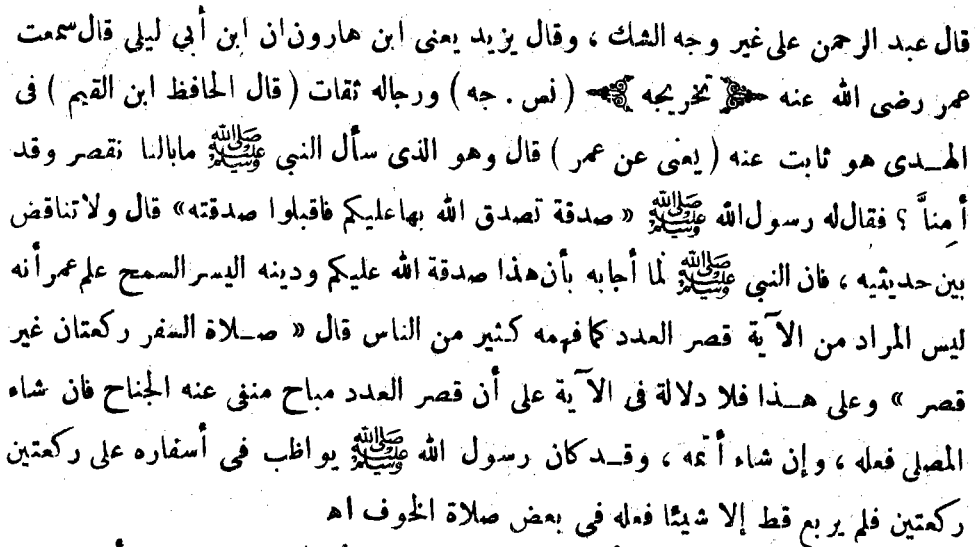 قال عبد الرحمن على غير وجه الشك ، وقال يزيد يعنى ابن هارون ان ابن أبي ليلى قال سمعت
عمر رضى الله عنه ﴿ تخريجه ﴾ ( نس . جه ) ورجاله ثقات ( قال الحافظ ابن القيم ) فى
الهــدى هو ثابت عنه ( يعنى عن عمر ) قال وهو الذى سأل النبي ﷺ مابالنا نقصر وقد
أمِناَّ ؟ فقال له رسول الله ﷺ « صدقة تصدق الله بها عليكم فاقبلوا صدقته » قال ولا تناقض
بين حديثيه ، فان النبي ﷺ لما أجابه بأن هذا صدقة الله عليكم ودينه اليسر السمح علم عمر أنه
ليس المراد من الآية قصر العدد كما فهمه كثير من الناس قال « صــلاة السفر ركعتان غير
قصر » وعلى هــذا فلا دلالة فى الآية على أن قصر العدد مباح منفى عنه الجناح فان شاء
المصلى فعله ، وإن شاء أتمه ، وقــد كان رسول الله ﷺ يواظب فى أسفاره على ركعتين
ركعتين فلم يربع قط إلا شيئا فعله فى بعض صلاة الخوف اهـ